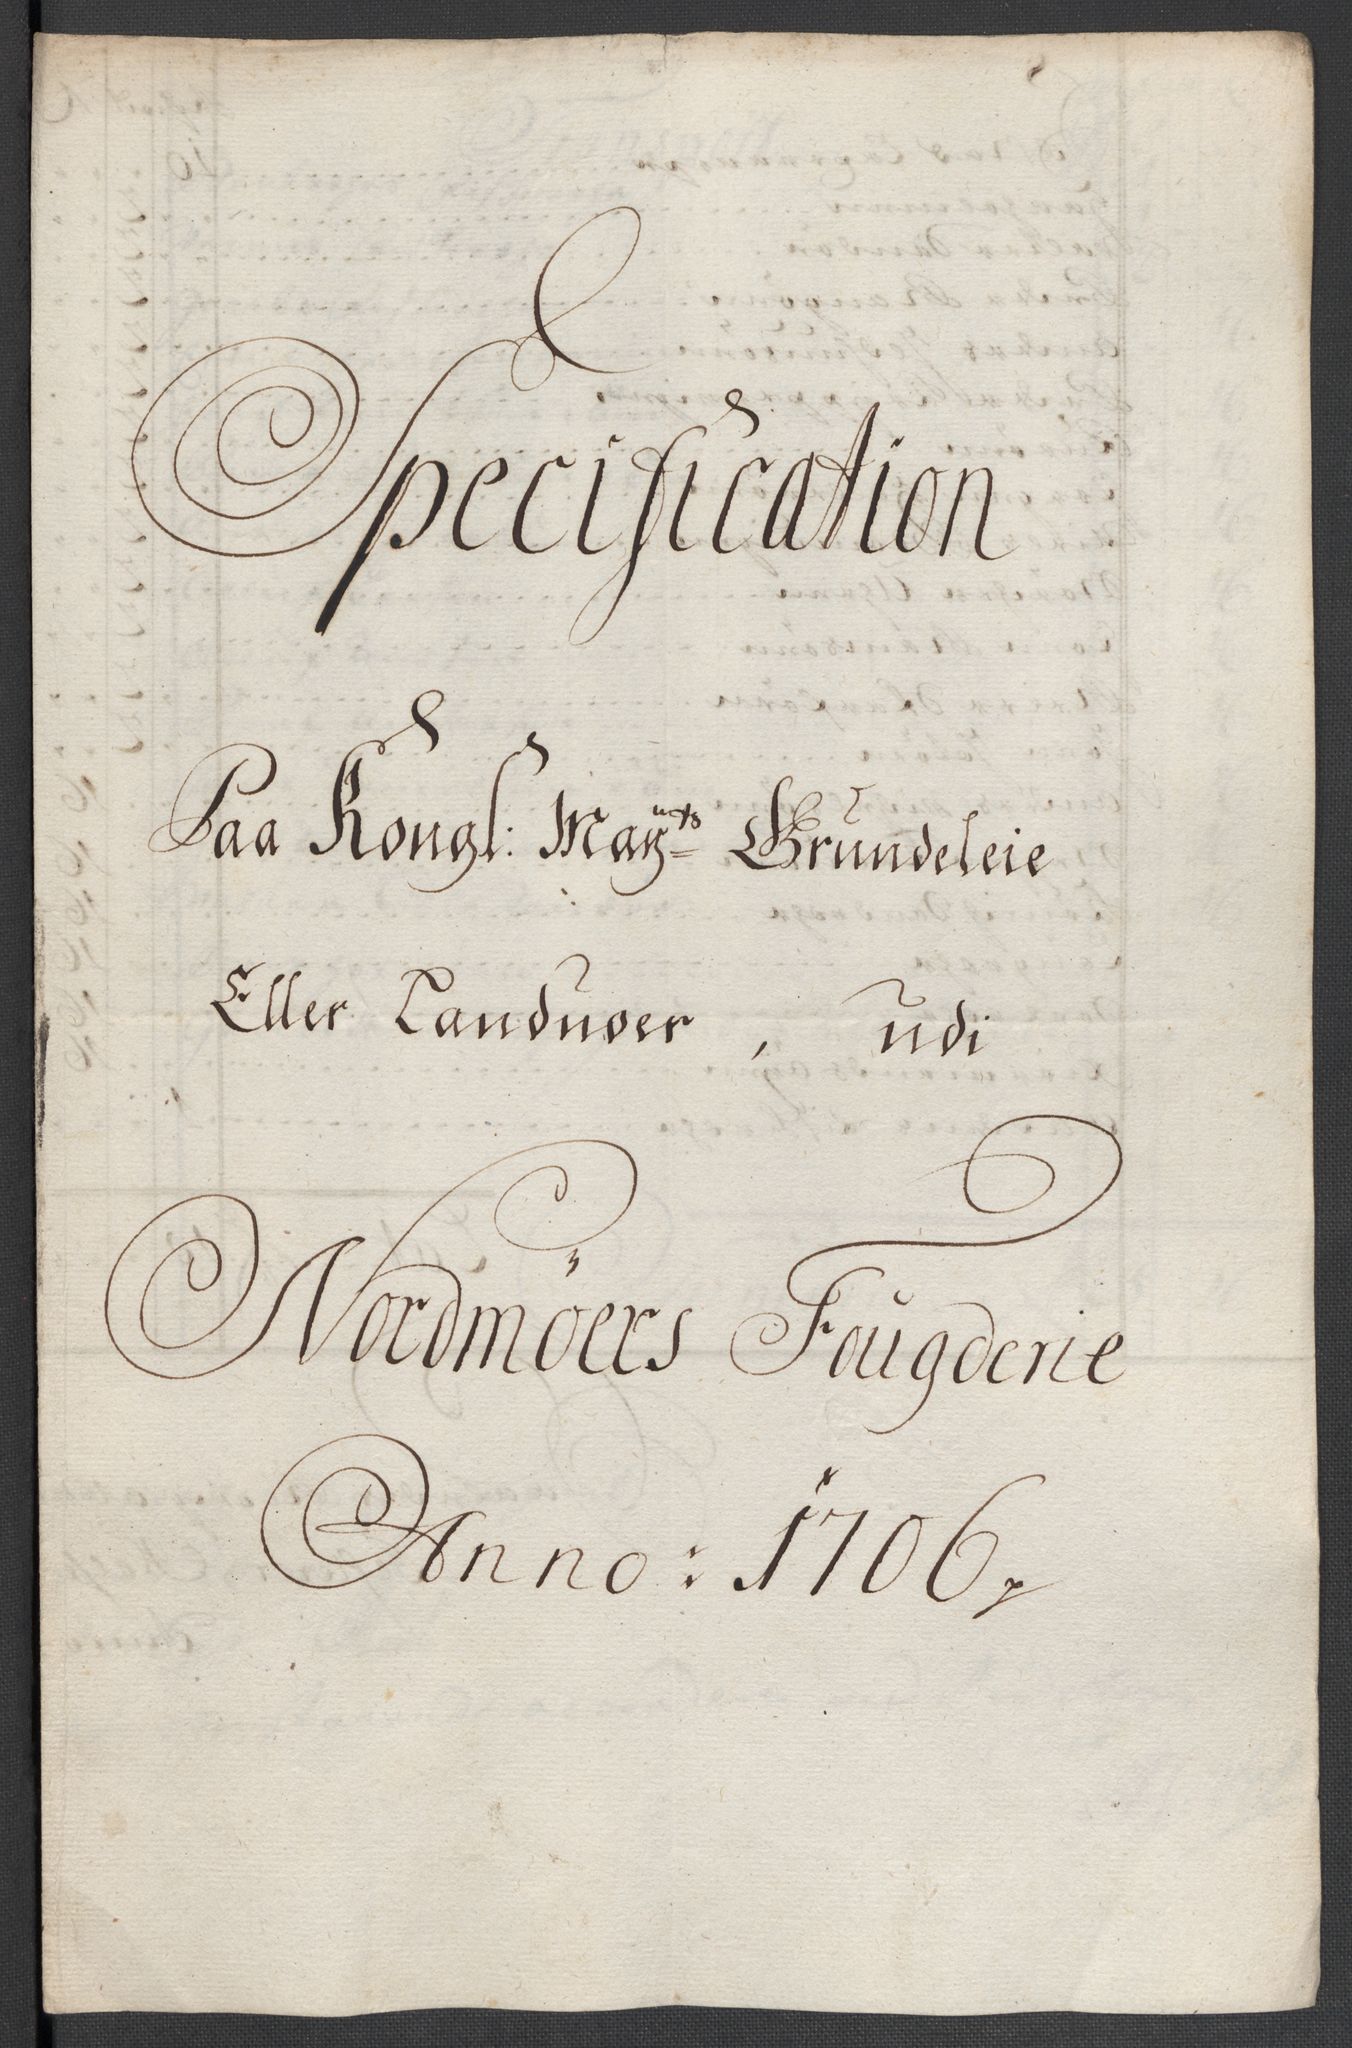 Specification
Paa Kongl: Maÿts Grundeleie
Eller Landuoer, udi
Nordmöers Fougderie
Anno: 1706